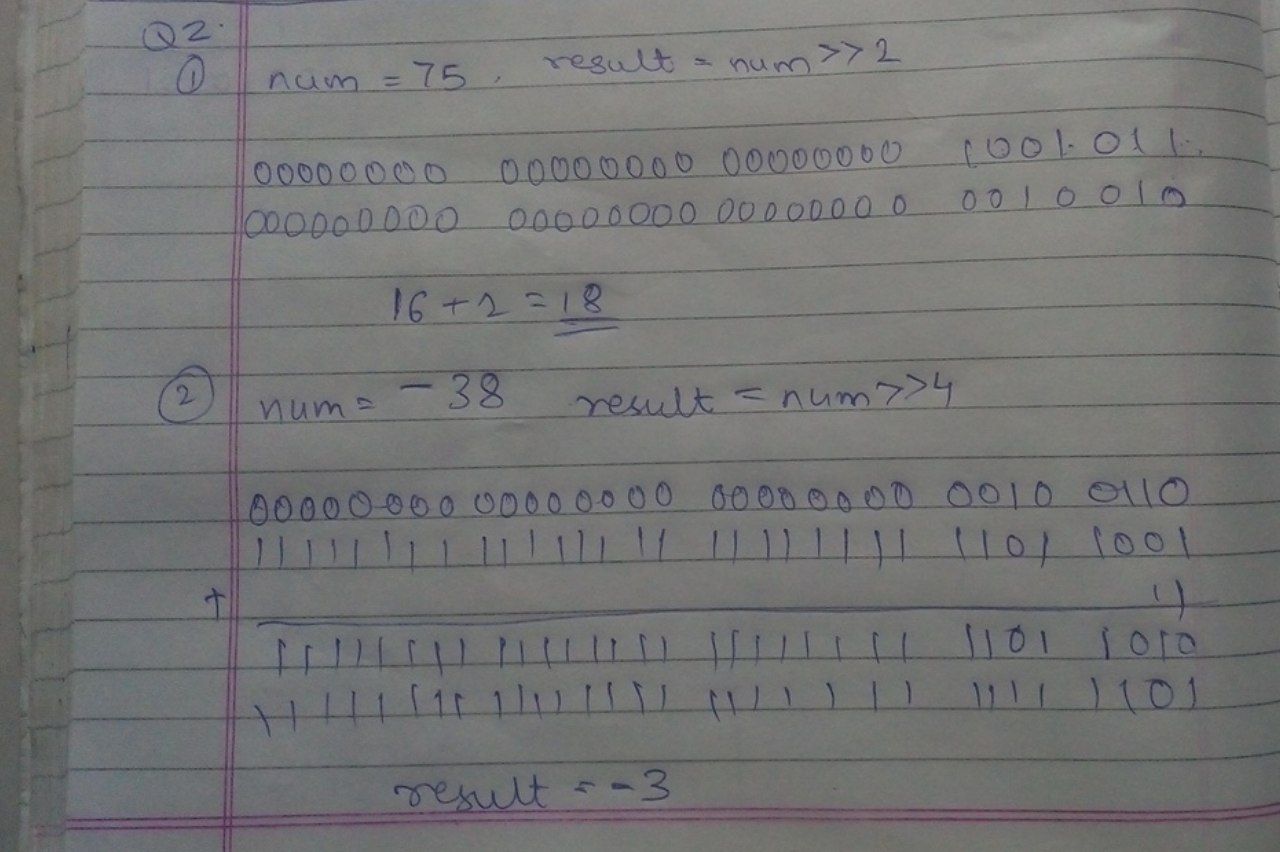 Q2.
① num = 75, result = num >> 2
00000000 00000000 00000000 1001 011
000000000 00000000 00000000 0010010
16 + 2 = 18
② num = -38 result = num >> 4
00000000 00000000 00000000 0010 0110
11111111 11111111 11111111 1101 1001
+ 1
11111111 11111111 11111111 1101 1010
11111111 11111111 11111111 1111 1101
result = -3